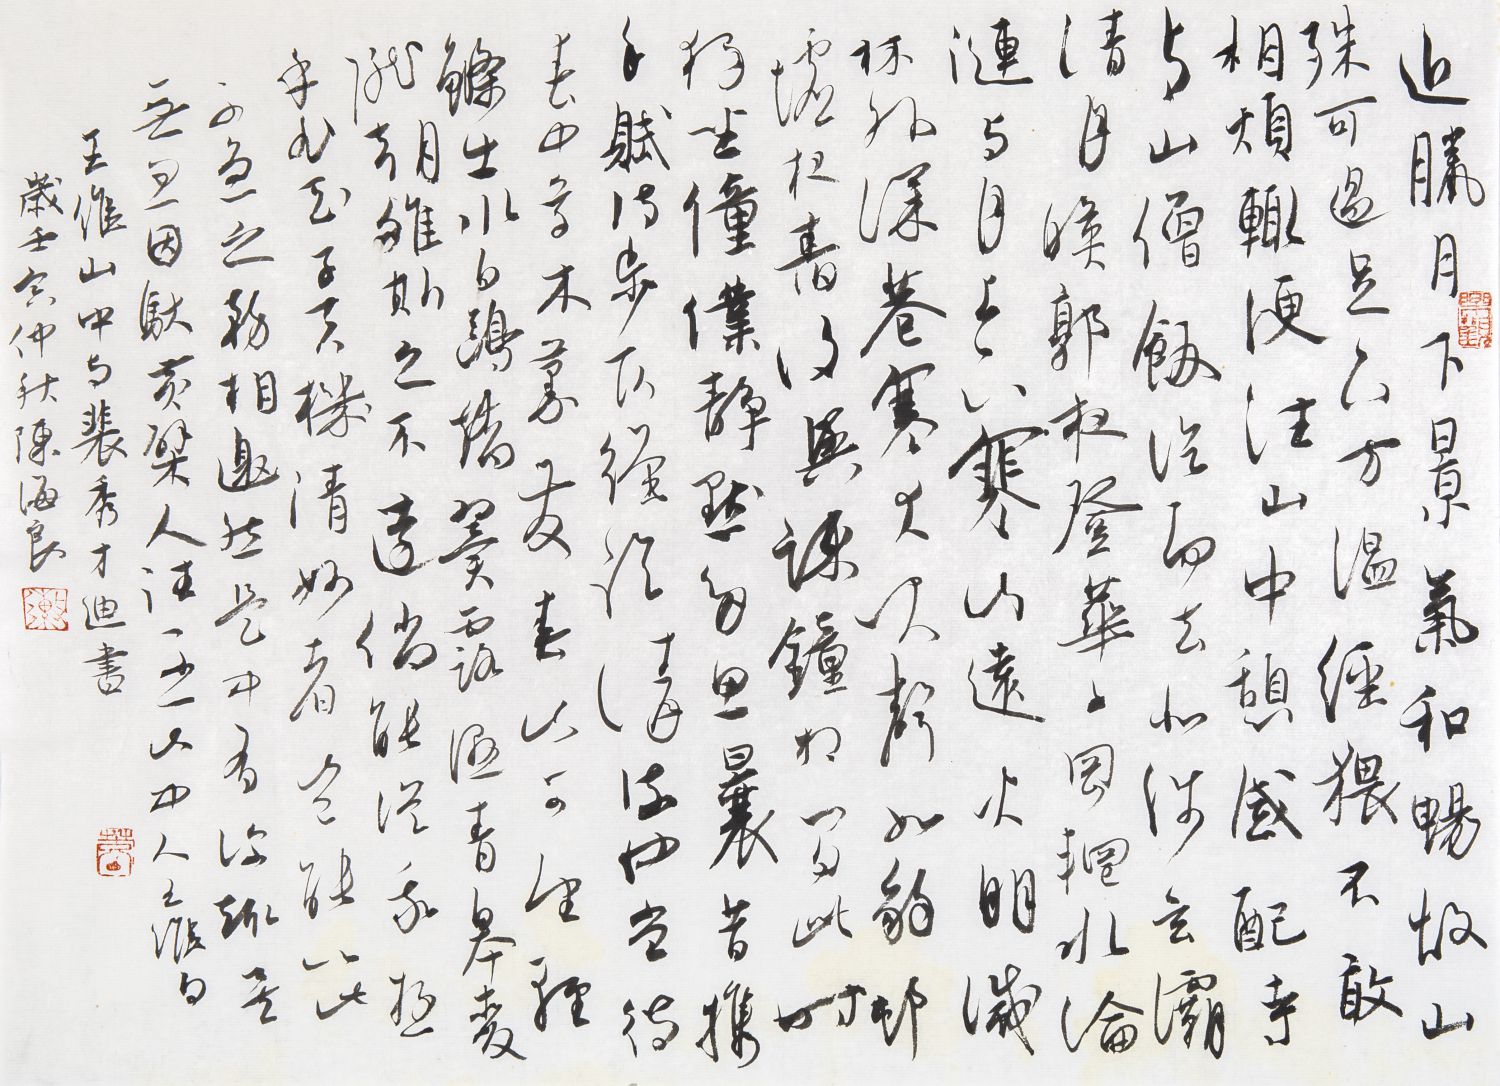 近臘月下景氣和暢故山
殊可過足下方温經猥不敢
相煩輒便往山中憩感配寺
与山僧飯訖而去北涉玄灞
清月映郭夜登華子岡輞水淪
漣与月上下寒山遠火明滅
林外深巷寒犬吠聲如豹邨
墟夜舂復與疎鐘相间此時
獨坐僮僕靜默多思曩昔攜
手賦诗步仄徑臨清流也當待
春中草木蔓發春山可望輕
鰷出水白鷗矯翼露濕青皋麥
隴朝雊斯之不遠倘能從我遊
乎非子天機清妙者豈能以此
不急之務相邀然是中有深趣矣
無忽因馱黃檗人往不一山中人王維白
王維山中与裴秀才迪書
歲壬寅仲秋陳海良